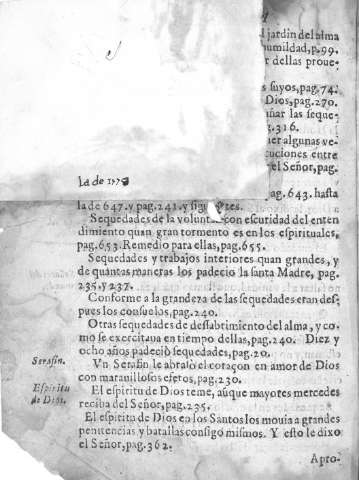 l jardin del alma
humildad, p.99.
r dellas proue-
s suyos, pag.74.
Dios, pag.270.
ñar las seque-
g.316.
ner algunas ve-
cuciones entre
el Señor, pag.
la de
ag.643. hasta
la de 647. y pag.241. y siguientes.
Sequedades de la voluntad con escuridad del enten
dimiento quan gran tormento es en los espirituales,
pag.653. Remedio para ellas, pag.655.
Sequedades y trabajos interiores quan grandes, y
de quantas maneras los padecio la santa Madre, pag.
235. y 237.
Conforme a la grandeza de las sequedades eran des-
pues los consuelos, pag.240.
Otras sequedades de dessabrimiento del alma, y co-
mo se exercitaua en tiempo dellas, pag.240. Diez y
ocho años padeciò sequedades, pag.20.
Serafin.
Vn Serafin le abrasò el coraçon en amor de Dios
con marauillosos efetos, pag.230.
Espiritu
de Dios.
El espiritu de Dios teme, aũque mayores mercedes
reciba del Señor, pag.235.
El espiritu de Dios en los Santos los mouia a grandes
penitencias y batallas consigo mismos. Y esto le dixo
el Señor, pag.362.
Apro-